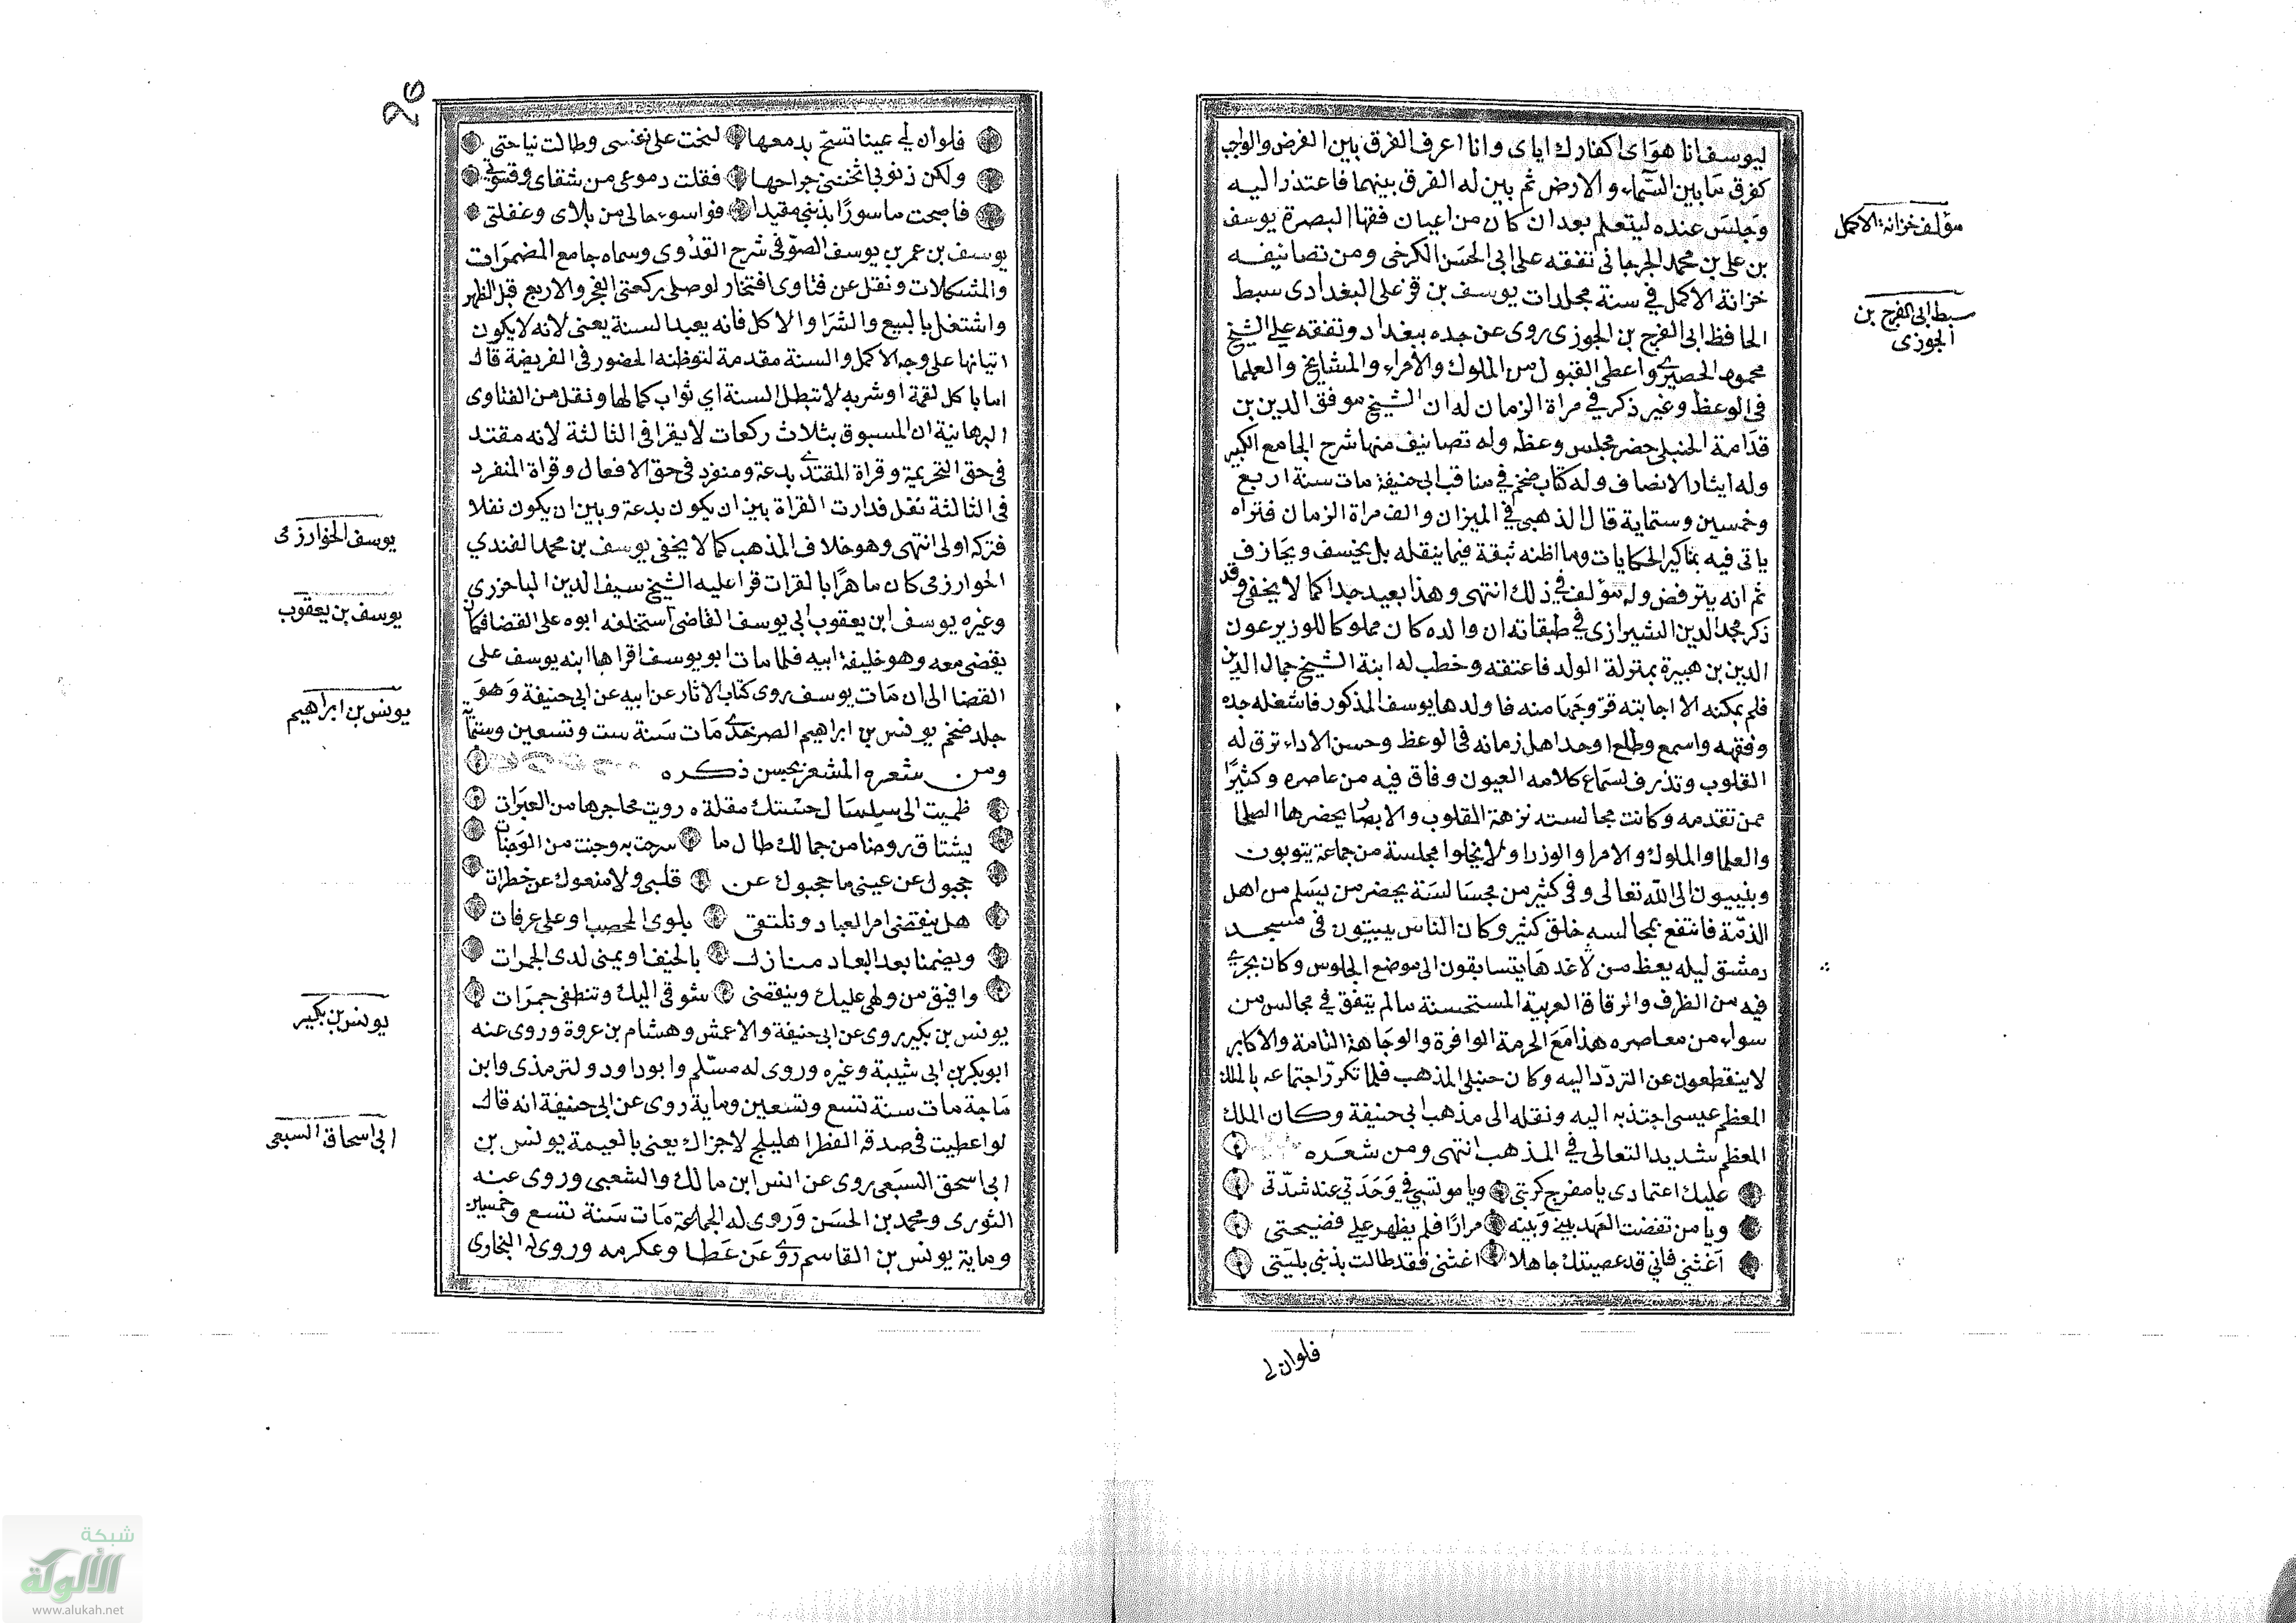 ليوسف انا هو اى اكفارك اياى وانا اعرف الفرق بين الفرض والواجب
كفرق ما بين السماء والارض ثم بين له الفرق بينهما فاعتذر اليه
وجلس عنده ليتعلم بعد ان كان من اعيان فقها البصرة يوسف
بن على بن محمد الجرجانى تفقه على ابى الحسن الكرخى ومن تصانيفه
خزانة الاكمل فى ستة مجلدات يوسف بن قزعلى البغدادى سبط
الحافظ ابى الفرج بن الجوزى روى عن جده ببغداد وتفقه على الشيخ
محمود الحصيرى واعطى القبول من الملوك والامراء والمشايخ والعلما
فى الوعظ وغير ذكر فى مراة الزمان له ان الشيخ موفق الدين بن
قدامة الحنبلى حضر مجلس وعظه وله تصانيف منها شرح الجامع الكبير
وله ايثار الانصاف وله كتاب ضخم فى مناقب ابى حنيفة مات سنة اربع
وخمسين وستماية قال الذهبى فى الميزان والف مراة الزمان فتراه
ياتى فيه بمناكير الحكايات وما اظنه ثبقة فيما ينقله بل يخسف ويجازف
ثم انه يترفض وله مؤلف فى ذلك انتهى وهذا بعيد جدا كما لا يخفى وقد
ذكر مجد الدين الشيرازى فى طبقاته ان والده كان مملوكا للوزير عون
الدين بن هبيرة بمنزلة الولد فاعتقه وخطب له ابنة الشيخ جمال الدين
فلم يمكنه الا اجابته فزوجها منه فاولدها يوسف المذكور فاشغله جده
وفقهه واسمع وطلع اوحد اهل زمانه فى الوعظ وحسن الاداء ترق له
القلوب وتذرف لسماع كلامه العيون وفاق فيه من عاصره وكثيرا
ممن تقدمه وكانت مجالسته نزهة القلوب والابصار يحضرها الصلحا
والعلما والملوك والامرا والوزرا ولا يخلوا مجلسة من جماعة يتوبون
وينيبون الى الله تعالى وفى كثير من مجسالسة يحضر من يسلم من اهل
الذمة فانتفع بمجالسه خلق كثير وكان الناس يبيتون فى مسجد
دمشق ليله يعظ من لاغدها يتسابقون الى موضع الجلوس وكان يجرى
فيه من الظرف والوقاة العربية المستحسنة مالم يتفق فى مجالس من
سواه من معاصره هذا مع الحرمة الوافرة والوجاهة التامة والاكابر
لا ينقطعون عن التردد اليه وكان حنبلى المذهب فلما تكرر اجتماعه بالملك
المعظم عيسى اجتذبه اليه ونقله الى مذهب ابى حنيفة وكان الملك
المعظم شديد التعالى فى المذهب انتهى ومن شعره
عليك اعتمادى يا مفرج كربتى ويا مونسى فى وحدتى عند شدتى
ويا من نقضت العهد بينى وبينه مرارا فلم يظهر على فضيحتى
اغثنى فانى قد عصيتك جاهلا اغثنى فقد طالت بذنبى بليتى
فلوان لى
مؤلف خزانة الاكمل
سبط ابى الفرج بن
الجوزى
فلوان لى عينا تسح بدمعها لنحت على نفسى وطالت نياحتى
ولكن ذنوبى اثخنتنى جراحها فقلت دموعى من شقاى وقسوتى
فاصبحت ماسورا بذنبى مقيدا فواسوء حالى من بلاى وغفلتى
يوسف بن عمر بن يوسف الصوفى شرح القدوى وسماه جامع المضمرات
والمشكلات ونقل عن فتاوى افتخار لو صلى ركعتى الفجر والاربع قبل الظهر
واشتغل بالبيع والشرا والاكل فانه يعيد السنة يعنى لانه لا يكون
اتيانها على وجه الاكمل والسنة مقدمة لتوظنه الحضور فى الفريضة قال
اما باكل لقمة او شربه لا تبطل السنة اي ثواب كمالها ونقل من الفتاوى
البرهانية ان المسبوق بثلاث ركعات لا يقرا فى الثالثة لانه مقتد
فى حق التحريمة وقراة المقتدى بدعة ومنفرد فى حق الافعال وقراة المنفرد
فى الثالثة نفل فدارت القراة بين ان يكون بدعة وبين ان يكون نفلا
فتركه اولى انتهى وهو خلاف المذهب كما لا يخفى يوسف بن محمد الفندي
الخوارزمى كان ماهرا بالقرات قرا عليه الشيخ سيف الدين الباخرزى
وغيره يوسف ابن يعقوب ابى يوسف القاضى استخلفه ابوه على القضا فكان
يقضى معه وهو خليفة ابيه فلما مات ابو يوسف اقراها ابنه يوسف على
القضا الى ان مات يوسف روى كتاب الاثار عن ابيه عن ابى حنيفة وهو
جلد ضخم يونس بن ابراهيم الصرخدى مات سنة ست وتسعين وستماية
ومن شعره المشعر بحسن ذكره
ظميت الى سلسال حسنك مقلة رويت محاجرها من العبرات
يشتاق روضا من جمالك طال ما سرحت به وجنت من الوجنات
حجبوك عن عينى ما حجبوك عن قلبى ولا منعوك عن خطرات
هل ينقضى امر العباد ونلتقى بلوى المحصب او على عرفات
ويضمنا بعد البعاد منازل بالخيف او بمنى لدى الجمرات
وافيق من ولهى عليك وينقضى شوقى اليك وتنطفى جمرات
يونس بن بكير روى عن ابى حنيفة والاعمش وهشام بن عروة وروى عنه
ابو بكر بن ابى شيبة وغيره وروى له مسلم وابو داود ولترمذى وابن
ماجة مات سنة تسع وتسعين وماية روى عن ابى حنيفة انه قال
لو اعطيت فى صدقة الفطر اهليلج لاجزاك يعنى بالعيمة يونس بن
ابى اسحق السبعى روى عن انس ابن مالك والشعبى وروى عنه
الثورى ومحمد بن الحسن وروى له الجماعة مات سنة تسع وخمسين
وماية يونس بن القاسم روى عن عطا وعكرمه وروى له البخاوى
يوسف الخوارزمى
يوسف بن يعقوب
يونس بن ابراهيم
يونس بن بكير
ابى اسحاق السبعى
شبكة
الألوكة
www.alukah.net